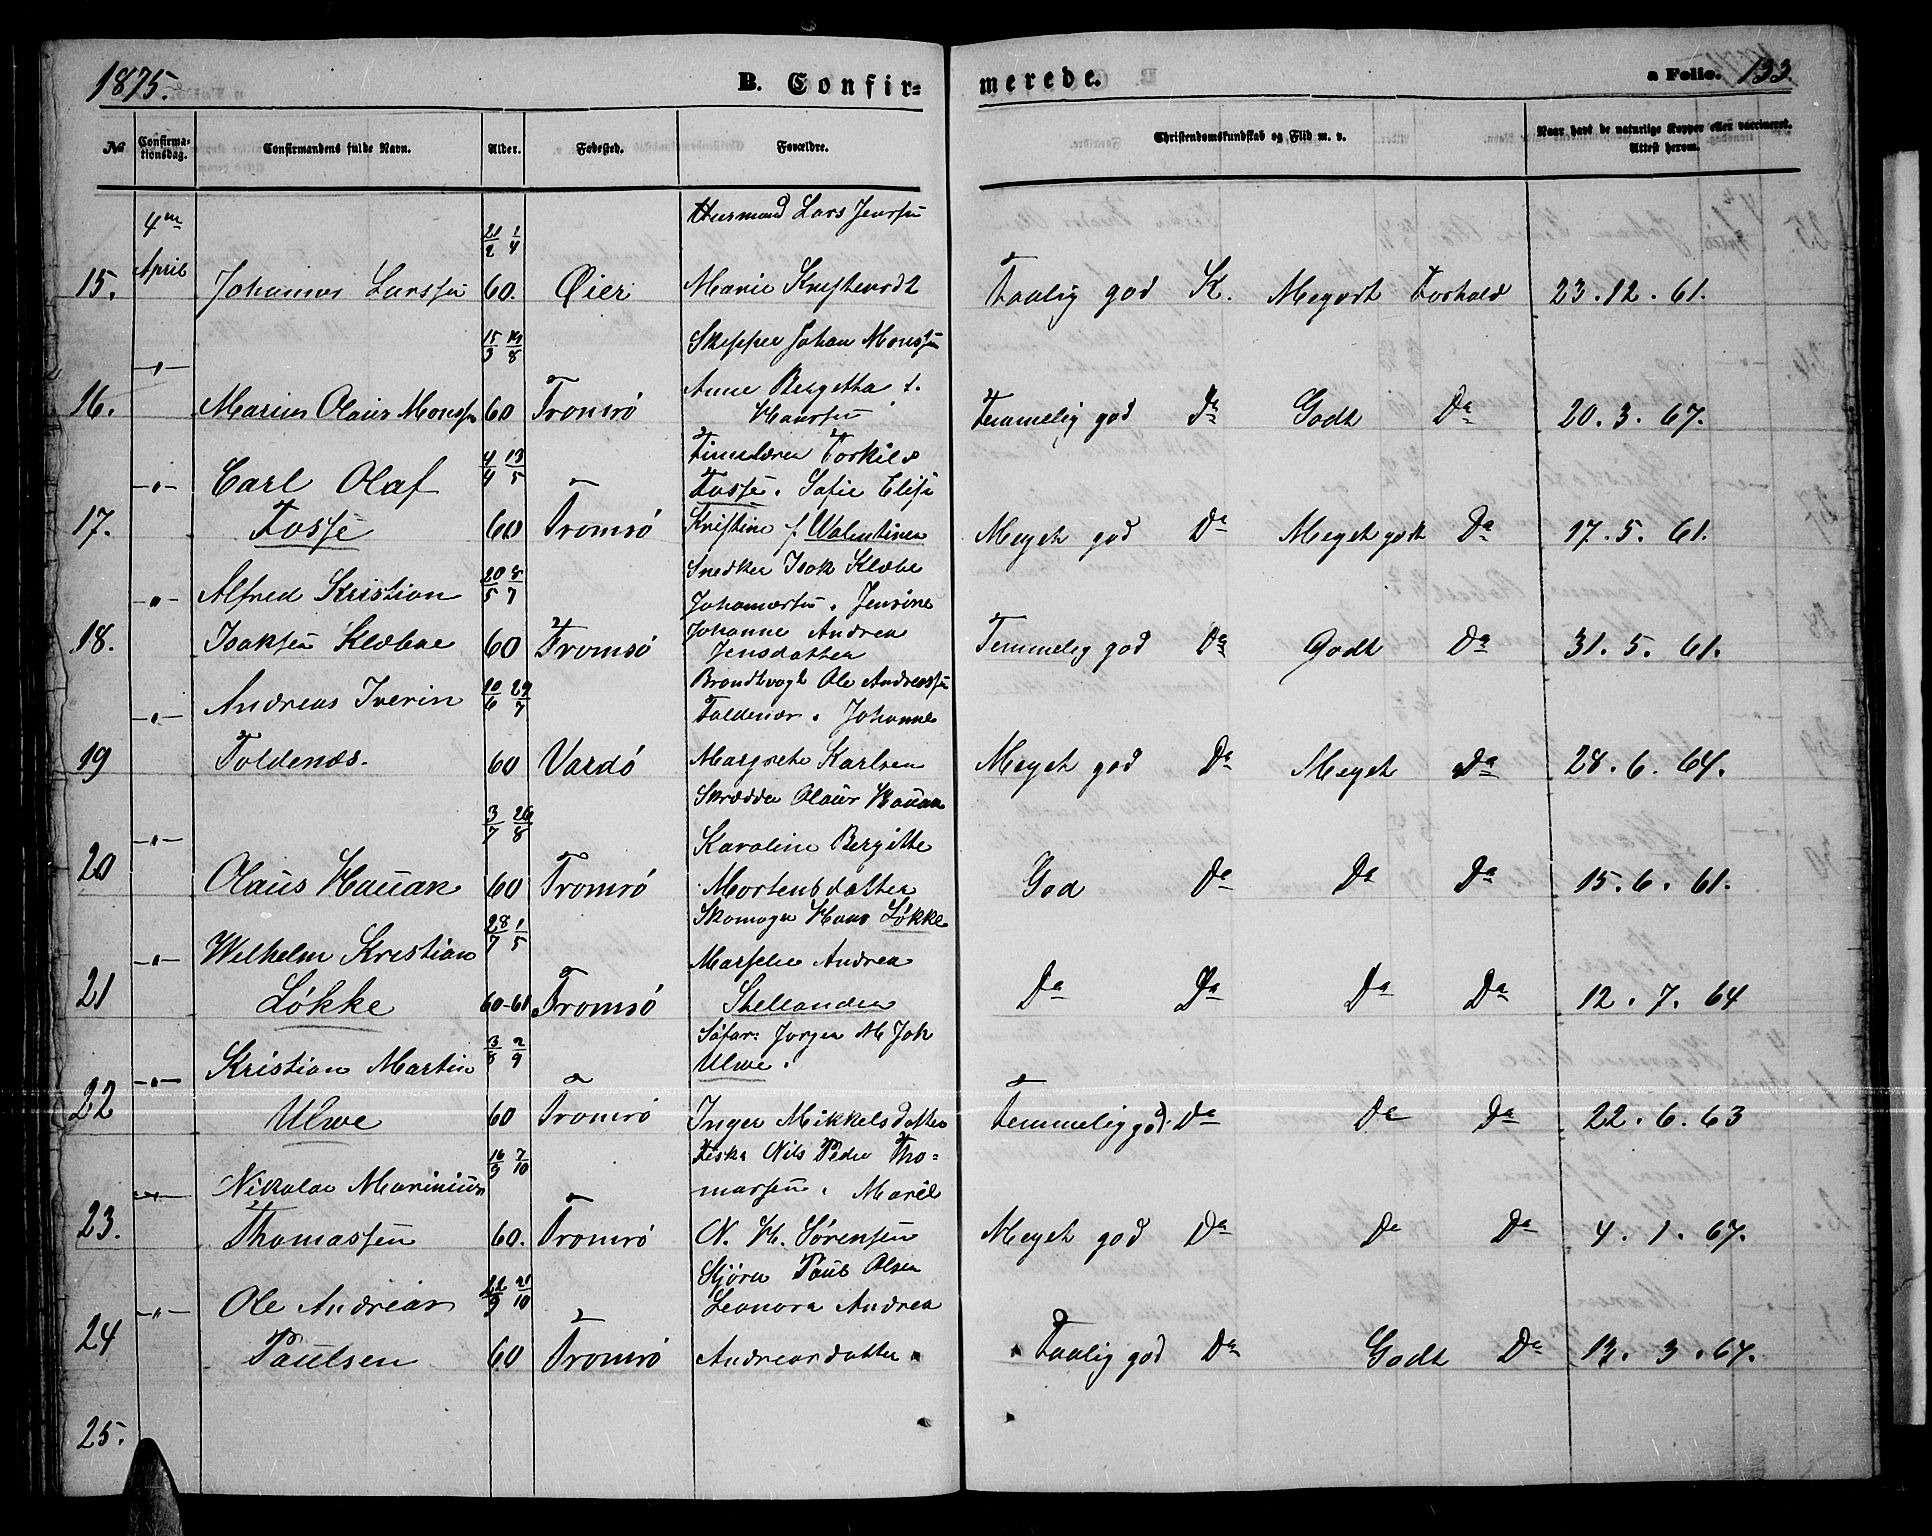 1875.
B. Confir=
merede.
a Folio. 133
No
Confirma-
tionsdag.
Confirmandens fulde Navn.
Alder.
Fødested.
Forældre.
Christendomskundskab og Flid m. v.
Naar havt de naturlige Kopper eller vaccineret.
Attest herom.
4de
April
21/2 1/4
Huusmand Lars Jenssen
15. Johannes Larssen 60. Øier Marie
Taalig god K. Meget Forhold 23.12.61.
15/3 19/8
Skipper Johan Monssen
Anne Bergetha f.
16. Marius Olaus Monssen 60 Tromsø Hanssen
Temmelig god Do Godt Do 20.3.67.
-"- Carl Olaf 4/4 13/5
Torkild
Fosse. Sofie Elise
17. Fosse 60 Tromsø Kristine f. Walentinsen
Meget god Do Meget godt Do 17.5.61.
-"- Alfred Kristian 20/5 8/7
Snedker Isak Klæboe
Johannessen. Jensine
18. Isaksen Klæboe 60 Tromsø Johanne Andrea
Jensdatter
Temmelig god Do Godt Do 31.5.61.
-"- Andreas Iverin 10/6 29/7
Brandvagt Ole Andreassen
Toldenæs. Johanne
19 Toldenæs. 60 Vardø Margrete Karlsen
Meget god Do Meget Do 28.6.64.
-"- 3/7 26/8
Skrædder Olaus Hauan
Karoline Bergitte
20 Olaus Hauan 60 Tromsø Mortensdatter
God Do Do Do 15.6.61.
28/7 1/5
Skomager Hans Løkke
-"- Wilhelm Kristian
Andrea
21 Løkke 60-61 Tromsø
Do Do Do Do 12.7.64
-"- Kristian Martin 3/8 2/9
Jørgen M Joh
Ulwe.
22 Ulwe 60 Tromsø Inger Mikkelsdatter
Temmelig god. Do Do Do 22.6.63
-"- Nikolai Marinius 16/9 7/10
Fisker Nils Peder Tho=
massen. Marie
23. Thomassen 60. Tromsø N. H. Sørensen
Meget god Do Do Do 4.1.67.
-"- Ole Andreas 22/9 21/10
Paul Olsen
Leonora Andrea
24 Paulsen 60 Tromsø Andreasdatter
Taalig god Do Godt Do 13.3.67.
25.